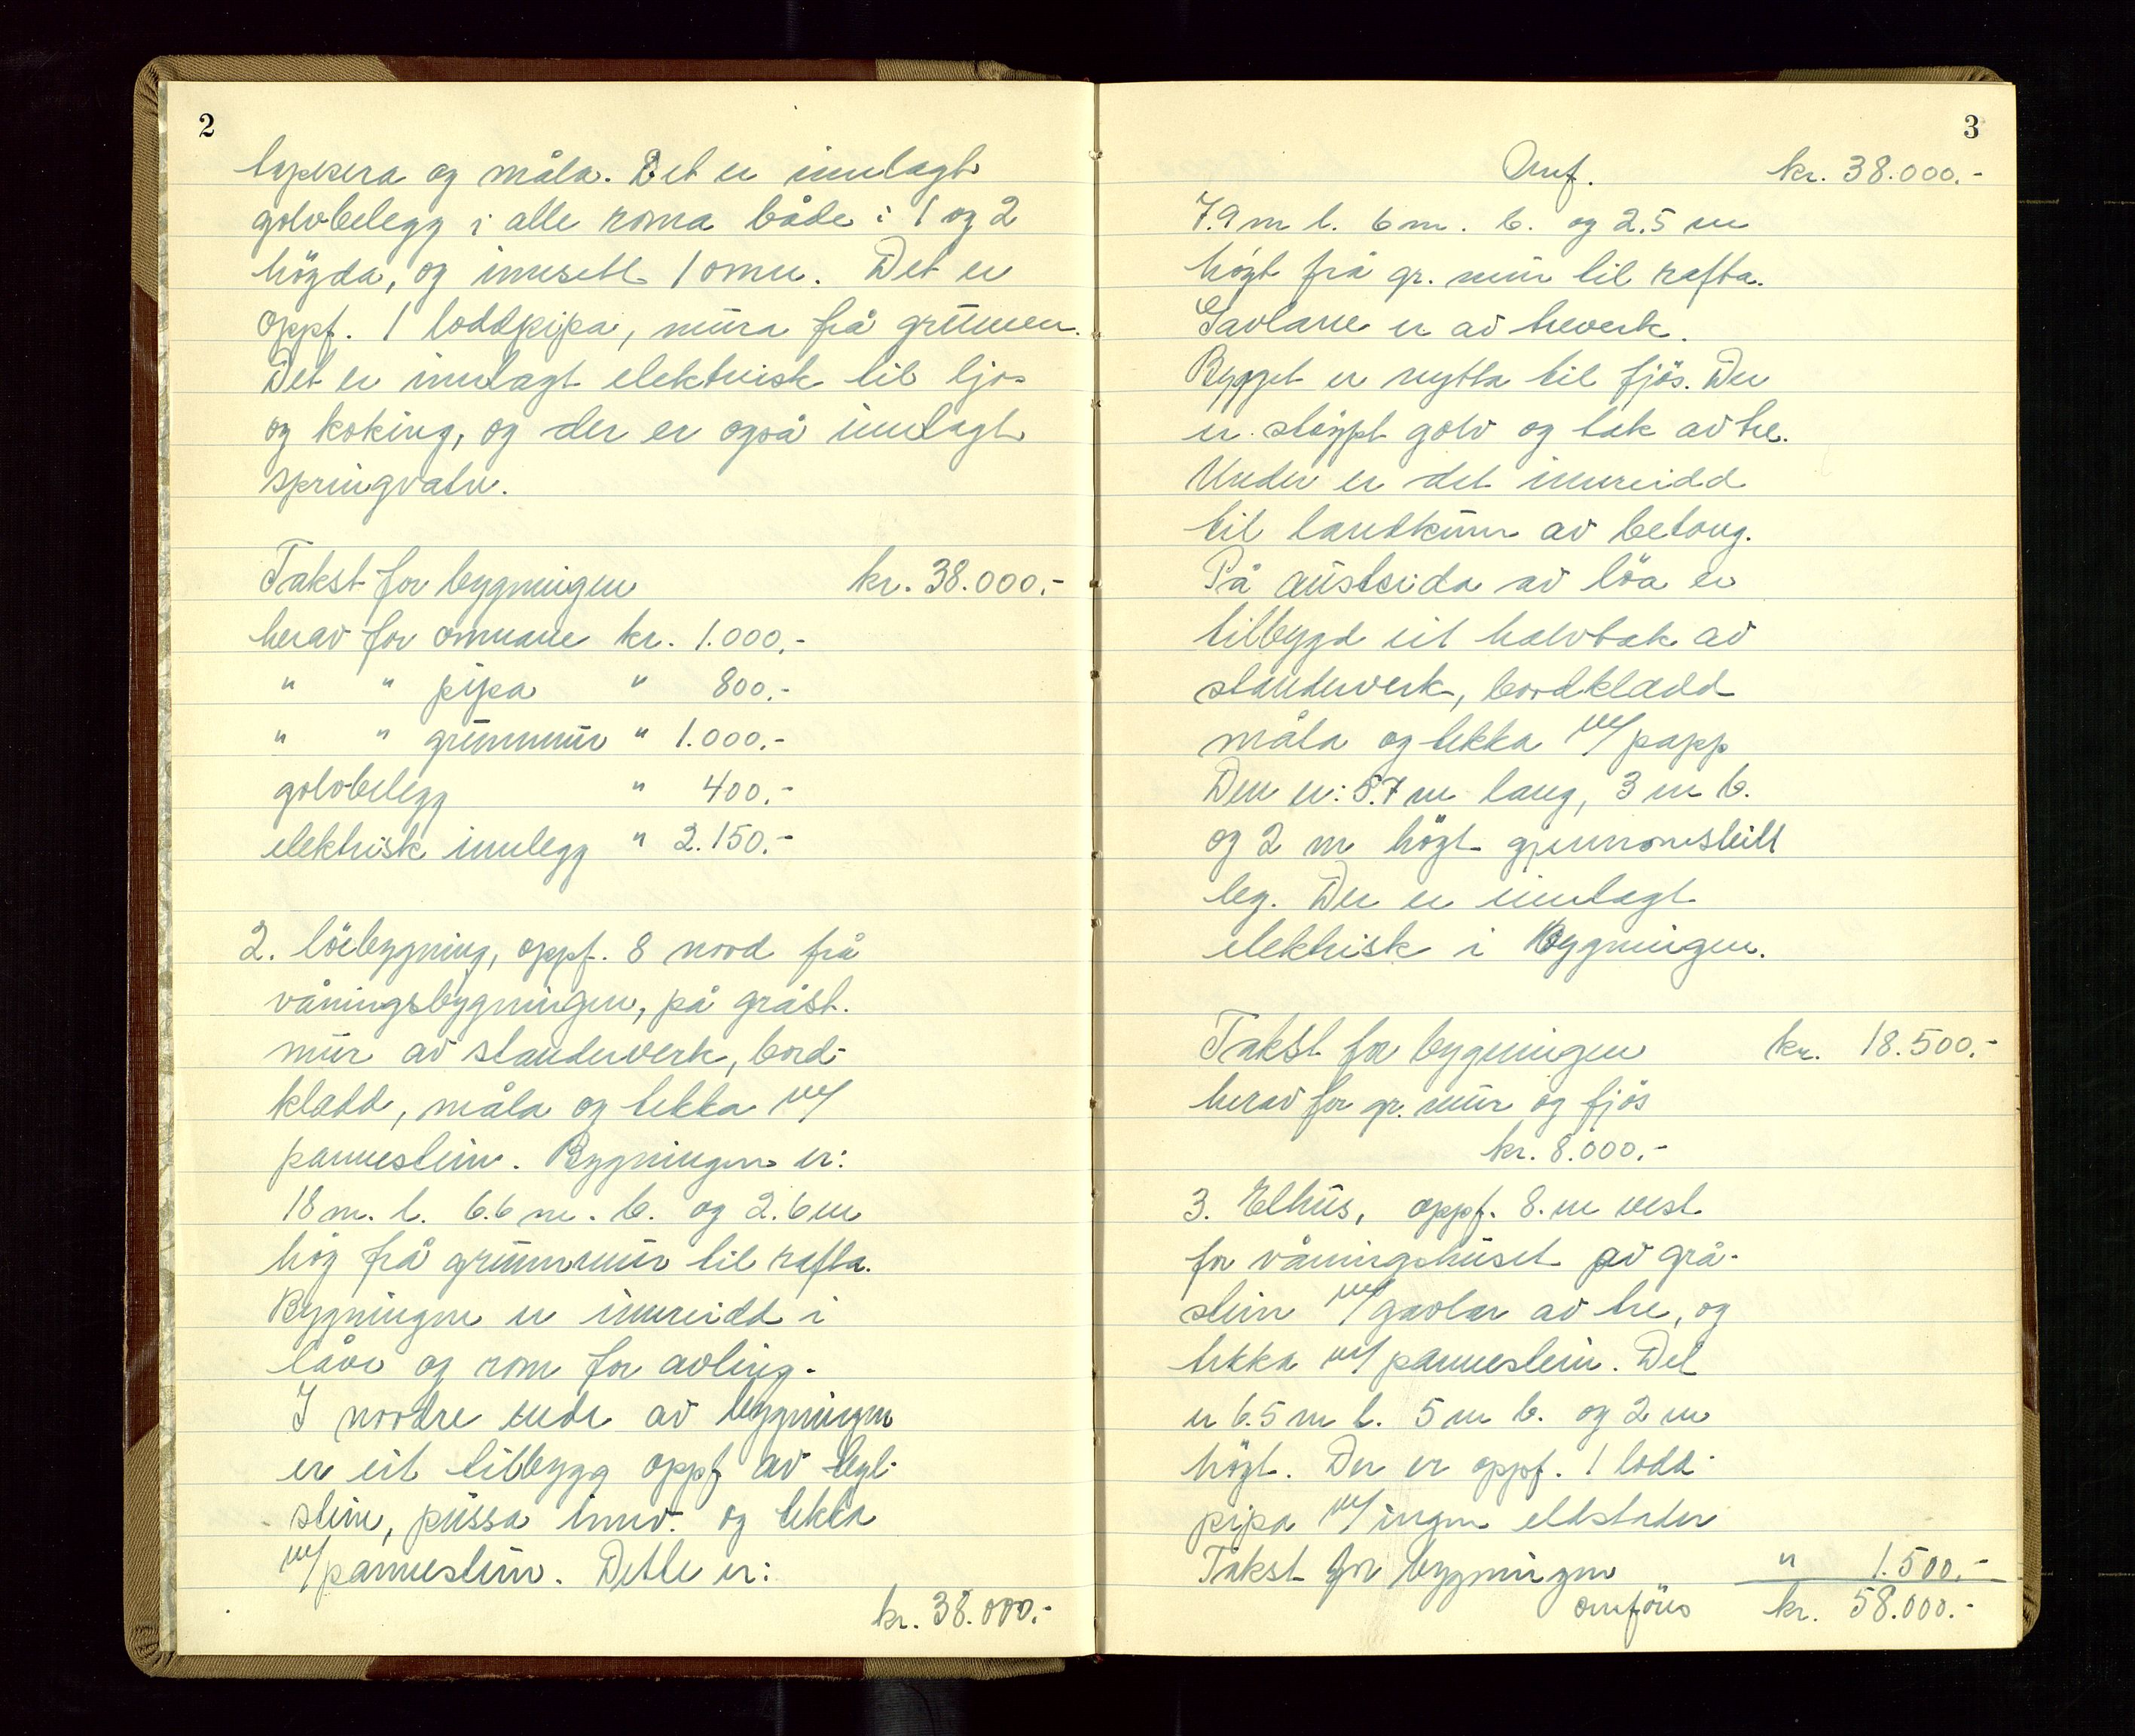 2
tapesera og måla. Det er innlagt
golvbelegg i alle roma både i 1 og 2
högda, og innsett 1 omn. Det er
oppf. 1 loddpipa, mura frå grunnen.
Det er innlagt elektrisk til ljos
og koking, og der er også innlagt
springvatn.
Takst for bygningen kr. 38.000.-
herav for omnane kr. 1.000.-
" " pipa " 800.-
" " grunnmur " 1.000.-
golvbelegg " 400.-
elektrisk innlegg " 2.150.-
2. löebygning, oppf. 8 nord frå
våningsbygningen, på gråst.
mur av standerverk, bord-
kledd, måla og tekka m/
pannestein. Bygningen er:
18 m. l. 6.6 m. b. og 2.6 m
hög frå grunnmur til rafta.
Bygningen er innreidd i
låve og rom for avling.
I nordre ende av bygningen
er eit tilbygg oppf av tegl-
stein, pussa innv. og tekka
m/pannestein. Dette er:
kr. 38.000.-
3
Omf. kr. 38.000.-
7.9 m l. 6 m. b. og 2.5 m
högt frå gr. mur til rafta.
Gavlane er av treverk.
Bygget er nytta til fjös. Der
er stöypt golv og tak av tre.
Under er det innreidd
til landkum av betong.
På austsida av löa er
tilbygd eit halvtak av
standerverk, bordkledd
måla og tekka m/papp
Den er: 5.7 m lang, 3 m b.
og 2 m högt gjennomsleitt
leg. Der er innlagt
elektrisk i bygningen.
Takst for bygningen kr. 18.500.-
herav for gr. mur og fjös
kr. 8.000.-
3. Elhus, oppf. 8. m vest
for våningshuset av grå-
stein m/gavlar av tre, og
tekka m/pannestein. Det
er 6.5 m l. 5 m b. og 2 m
högt. Der er oppf. 1 lodd
pipa m/ingen eldstader
Takst for bygningen " 1.500.-
omföres kr. 58.000.-